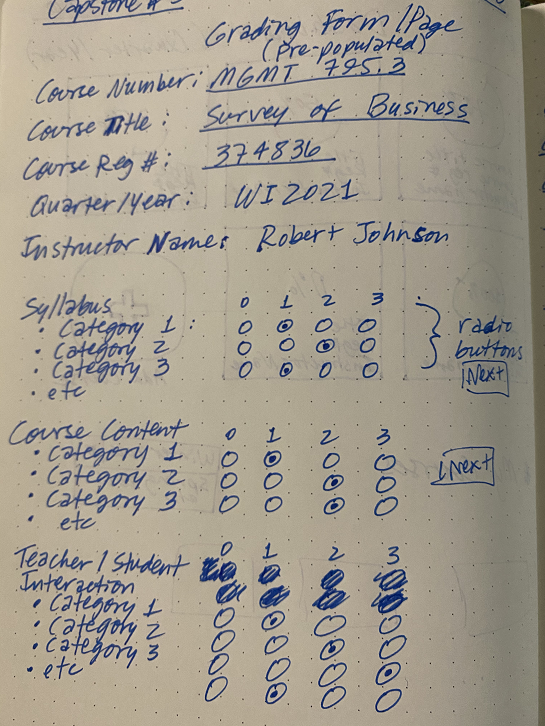 Capstone
Grading Form/Page
(Pre-populated)
Course Number: MGMT 795.3
Course Title: Survey of Business
Course Reg #: 374836
Quarter/Year: WI 2021
Instructor Name: Robert Johnson
Syllabus 0 1 2 3
• Category 1:
• Category 2
• Category 3
• etc
radio
buttons
Next
Course Content 0 1 2 3
• Category 1
• Category 2
• Category 3
• etc
Next
Teacher/Student 0 1 2 3
Interaction
• Category 1
• Category 2
• Category 3
• etc